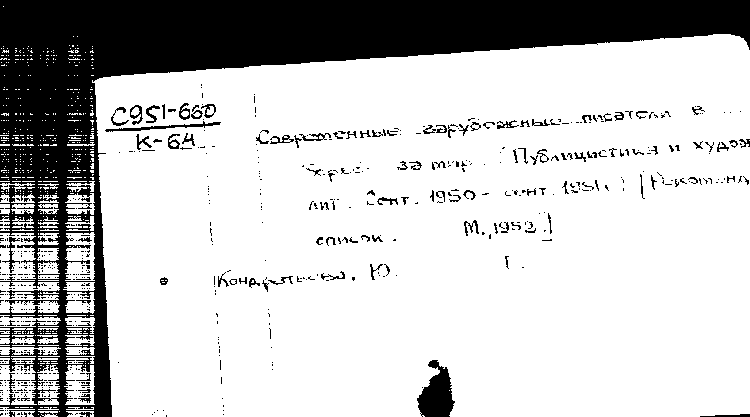 С951-660
К-64
Современные зарубежные писатели в
за мир. (Публицистика и худож
лит. Сент. 1950 - сент. 1951г.) [Рекоменд
список. М., 1952]
Кондратьева, Ю. Г.